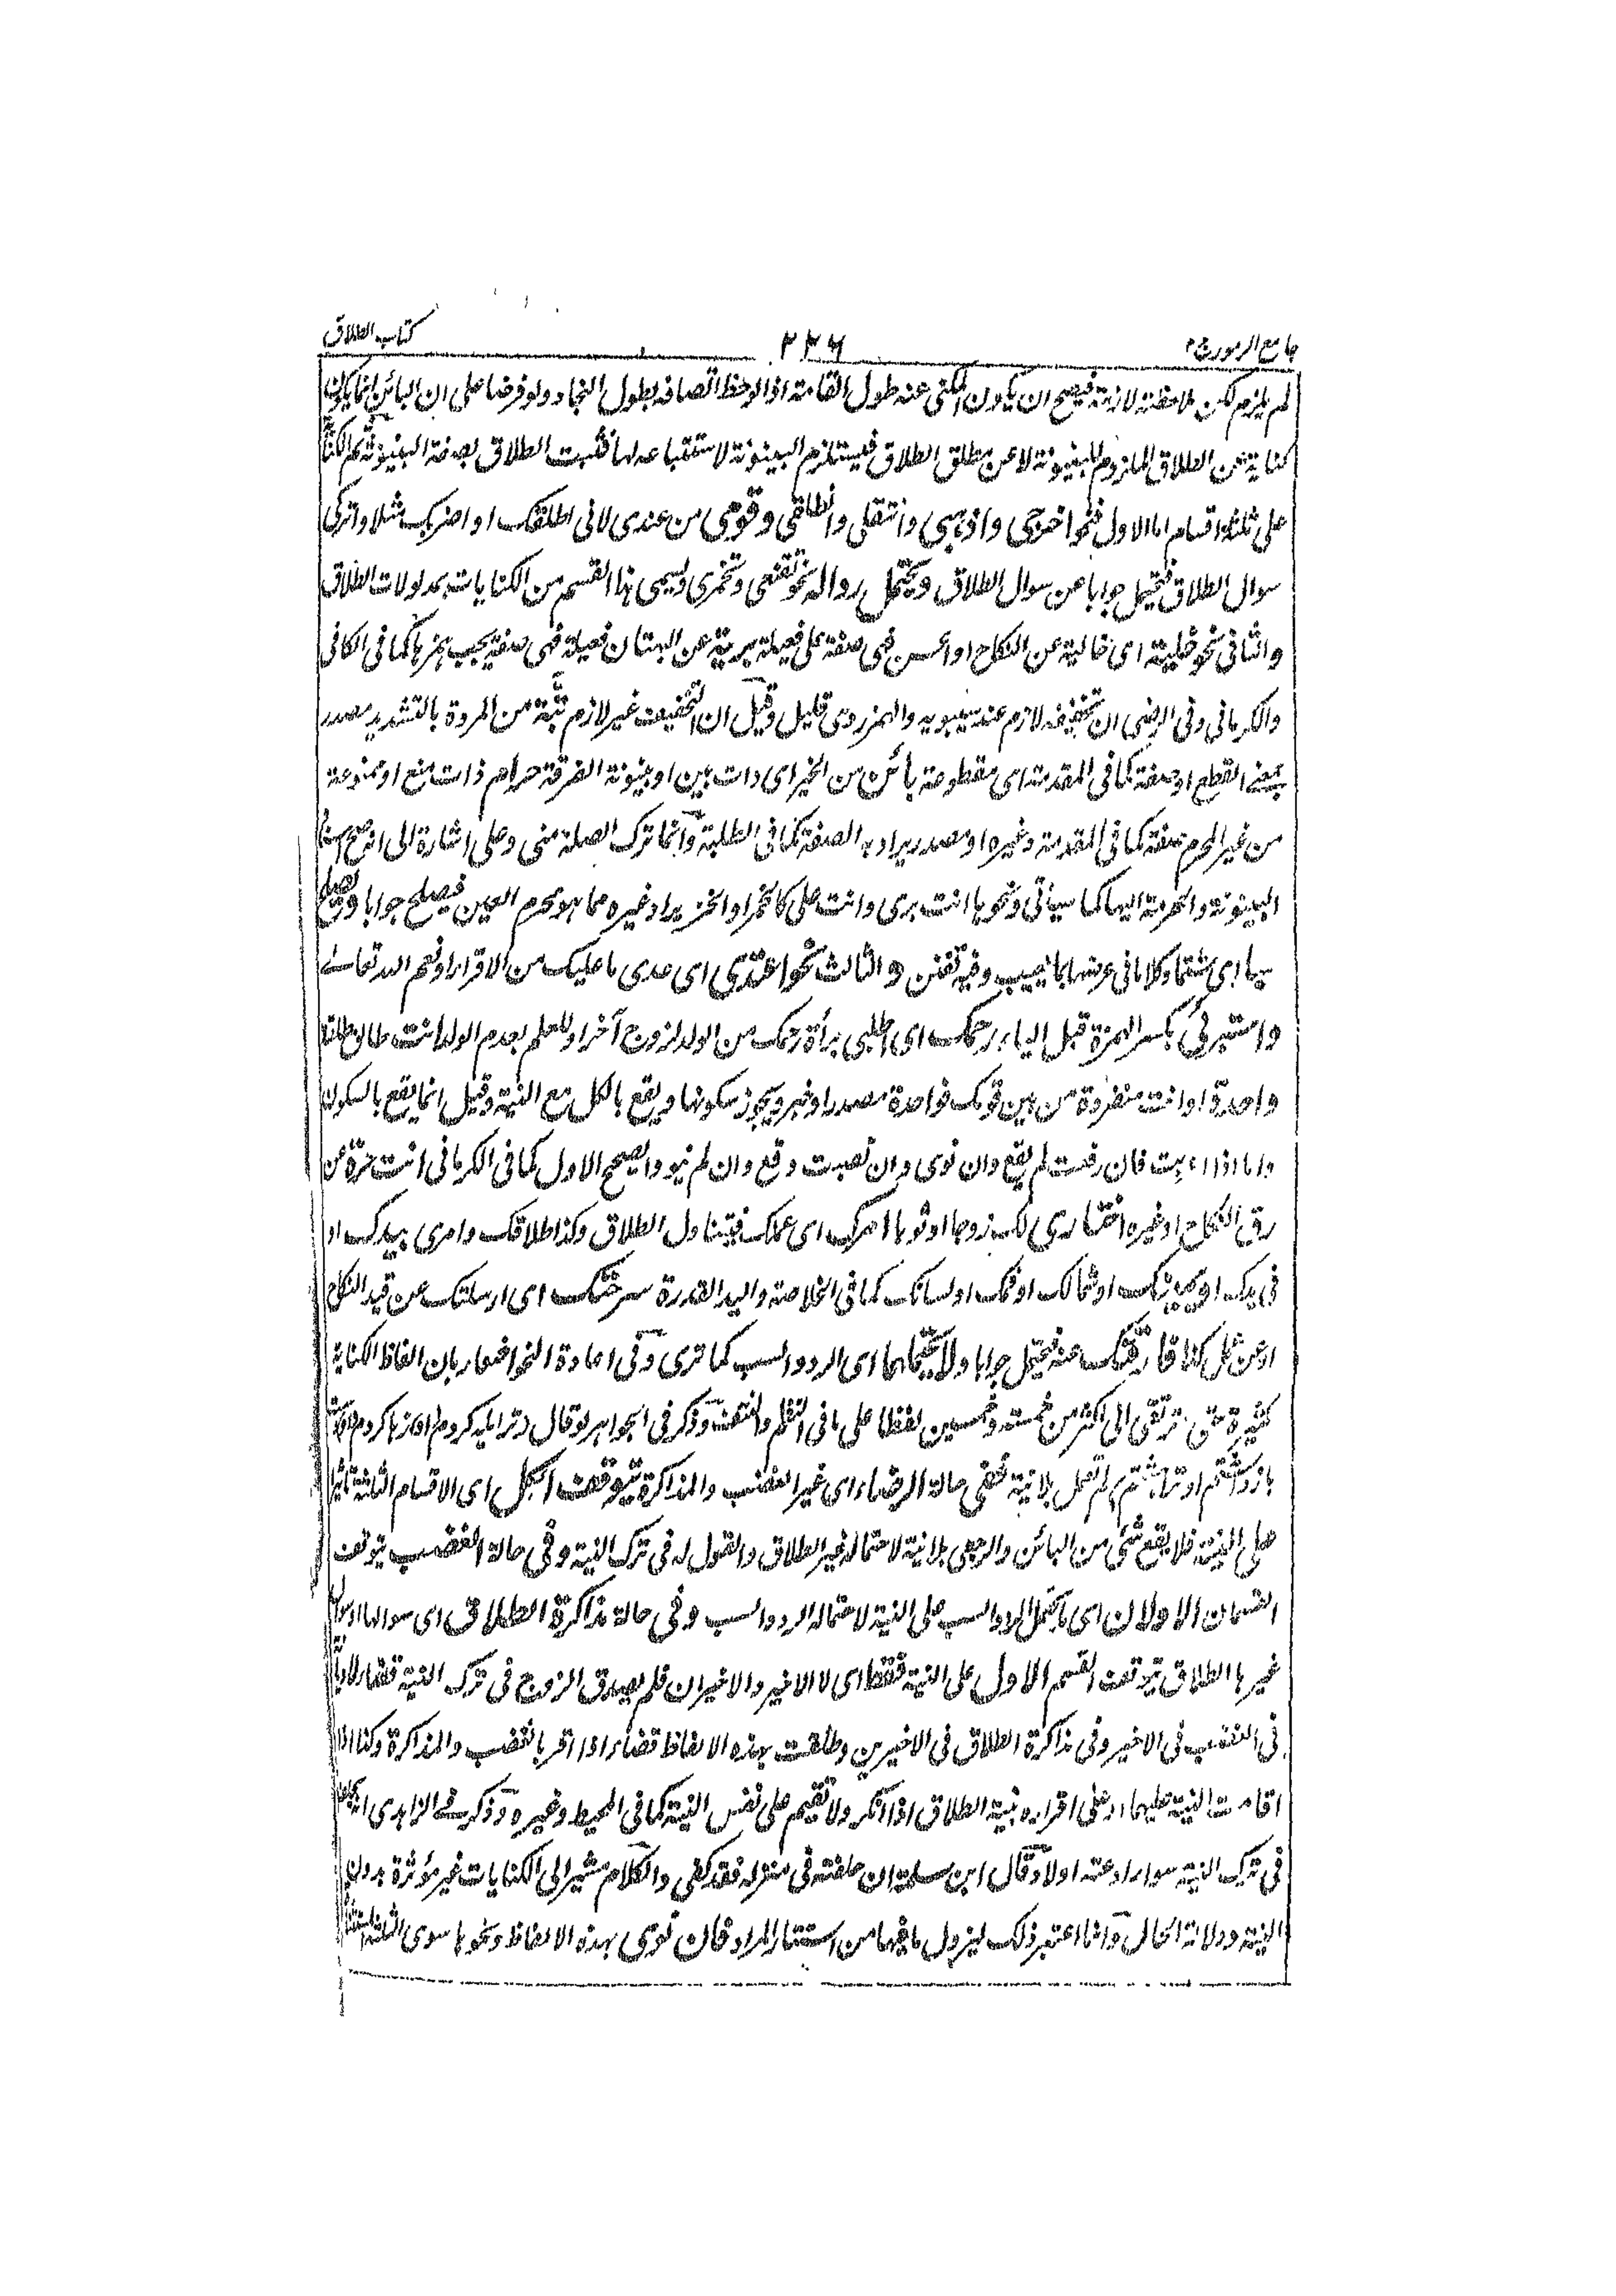 جامع الرموز ج ٢
٣٣٦
كتاب الطلاق
لم يلزم لكن ملاحظته لازمة فيصح ان يكون المكنى عنه طول القامة اذا لوحظ اتصافه بطول النجاد ولو فرضا على ان البائن انما يكون
كناية عن الطلاق الملزوم للبينونة لا عن مطلق الطلاق فيستلزم البينونة لاستتباعه لها فثبت الطلاق بصفة البينونة ثم الكناية
على ثلثة اقسام اما الاول فنحو اخرجي واذهبي وانتقلي وانطلقي وقومي من عندي لاني اطلقك او اضربك مثلا واتركي
سوال الطلاق فيحتمل جوابا عن سوال الطلاق ويحتمل ردا له نحو تقنعي وتخمري ويسمى هذا القسم من الكنايات بمدلولات الطلاق
والثاني نحو خلية اى خالية عن النكاح او الحسن فهي صفة على فعيلة برية عن البهتان فعيلة فهي صفة يجب همزها كما في الكافي
والكرماني وفي الرضي ان تخفيفه لازم عند سيبويه والهمز ردي قليل وقيل ان التخفيف غير لازم بتة من المروة بالتشديد مصدر
بمعنى القطع او صفة كما في المقدمة اى مقطوعة بائن من الخير اى ذات بين او بينونة الفرقة حرام ذات منع او ممنوعة
من غير المحرم صفة كما في المقدمة وغيره او مصدر يراد به الصفة كما في الطلبة وانما ترك الصلة مني وعلي اشارة الى انه صح
البينونة والحرمة اليها كما سياتي ونحوها انت بري وانت علي كالخمر او الخنزير او غيره مما هو محرم العين فيصلح جوابا ويصلح
سبا اى شتما وكلاما في عرضها بما يعيب وفيه تفنن والثالث نحو اعتدي اى عدي ما عليك من الاقراء او نعم الله تعالى
واستبرئي بكسر الهمزة قبل الياء رحمك اى اطلبي برأة رحمك من الولد لزوج آخر او للعلم بعدم الولد انت طالق طلقة
واحدة او انت منفردة من بين قومك فواحدة مصدر او خبر ويجوز سكونها ويقع بالكل مع النية وقيل انما يقع بالسكون
واما اذا اعربت فان رفعت لم يقع وان نوى وان نصبت وقع وان لم ينو والصحيح الاول كما في الكرماني انت حرة عن
رق النكاح او غيره اختاري لك زوجا او ثوبا امرك اى عملك فيتناول الطلاق وكذا طلاقك وامري بيدك او
في يدك او يمينك او شمالك او فمك او لسانك كما في الخلاصة واليد القدرة سرحتك اى ارسلتك عن قيد النكاح
او عن مثل كذا فارقتك عنه فيحتمل جوابا ولا يحتملهما اى الرد والسب كما ترى وفي اعادة النحو اشعار بان الفاظ الكناية
كثيرة حتى ترتقي الى اكثر من خمسة وخمسين لفظا على ما في النظم والنتف وذكر في الجواهر لو قال
بازداشتم او لم تعمل بلا نية ففي حالة الرضاء اى غير الغضب والمذاكرة يتوقف الكل اى الاقسام الثلثة تاثيرا
على النية فلا يقع شئ من البائن والرجعي بلا نية لاحتماله غير الطلاق والقول له في ترك النية وفي حالة الغضب يتوقف
القسمان الاولان اى ما يحتمل الرد والسب على النية لاحتماله الرد والسب وفي حالة مذاكرة الطلاق اى سوالها او سوال
غيرها الطلاق يتوقف القسم الاول على النية فقط اى لا الاخير والاخيران فلم يصدق الزوج في ترك النية قضاء لا ديانة
في الغضب في الاخير وفي مذاكرة الطلاق في الاخيرين وطلقت بهذه الالفاظ قضاء اذا اقر بالغضب والمذاكرة وكذا اذا
اقامت البينة عليهما او على اقراره بنية الطلاق اذا انكر ولا تقيم على نفس النية كما في المحيط وغيره وذكر في الزاهدي انه يحلف
في ترك النية سواء ادعته اولا وقال ابن سلمة ان حلفته في منزله فقد كفى والكلام مشير الى الكنايات غير مؤثرة بدون
النية ودلالة الحال وانما اعتبر ذلك ليزول ما فيها من استتار المراد فان نوى بهذه الالفاظ ونحوها سوى الثلثة